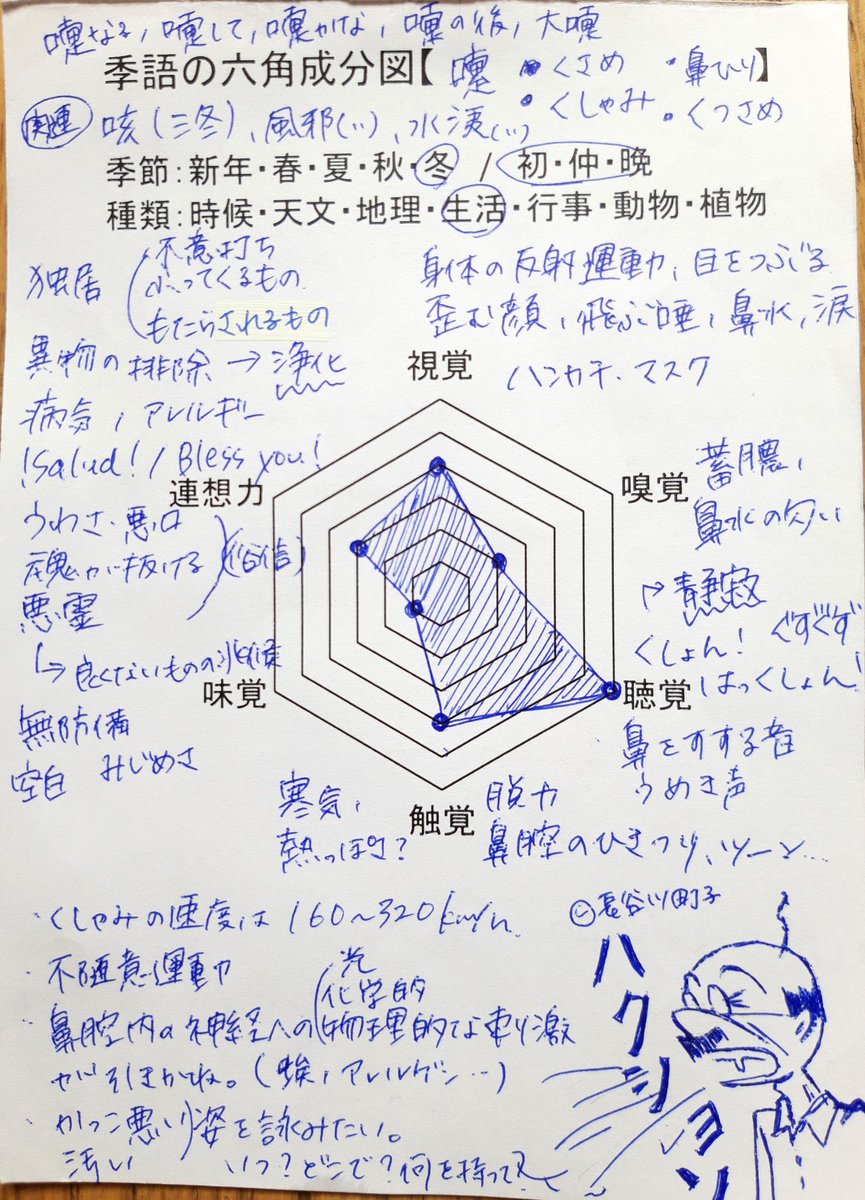 嚔なる，嚔して，嚔かけな，嚔の後，大嚔
季語の六角成分図【嚔 ・くさめ ・鼻ひり】
・くしゃみ ・くつさめ
関連 咳（三冬）、風邪（〃）、水洟（〃）
季節：新年・春・夏・秋・冬 / 初・仲・晩
種類：時候・天文・地理・生活・行事・動物・植物
独居
不意打ち
ふってくるもの
もたらされるもの
異物の排除→浄化
病気，アレルギー
¡Salud! / Bless you!
うわさ・悪口
魂が抜ける（俗信）
悪霊
↳良くないものの兆候
無防備
空白 みじめさ
身体の反射運動，目をつぶる
歪む顔，飛ぶ唾，鼻水，涙
ハンカチ・マスク
視覚
連想力
嗅覚
蓄膿，
鼻水の匂い
静寂
くしょん！ ぐずぐず
はっくしょん！
聴覚
鼻をすする音
うめき声
味覚
触覚
寒気，
熱っぽさ？
脱力
鼻腔のひきつり、ツーン…
・くしゃみの速度は 160〜320km/h
・不随意運動
・鼻腔内の神経への（光 化学的 物理的な刺激
がひきがね。（埃，アレルゲン…）
・かっこ悪い 汚い）姿を詠みたい。
いつ？どこで？何を持って？
©長谷川町子
ハクション